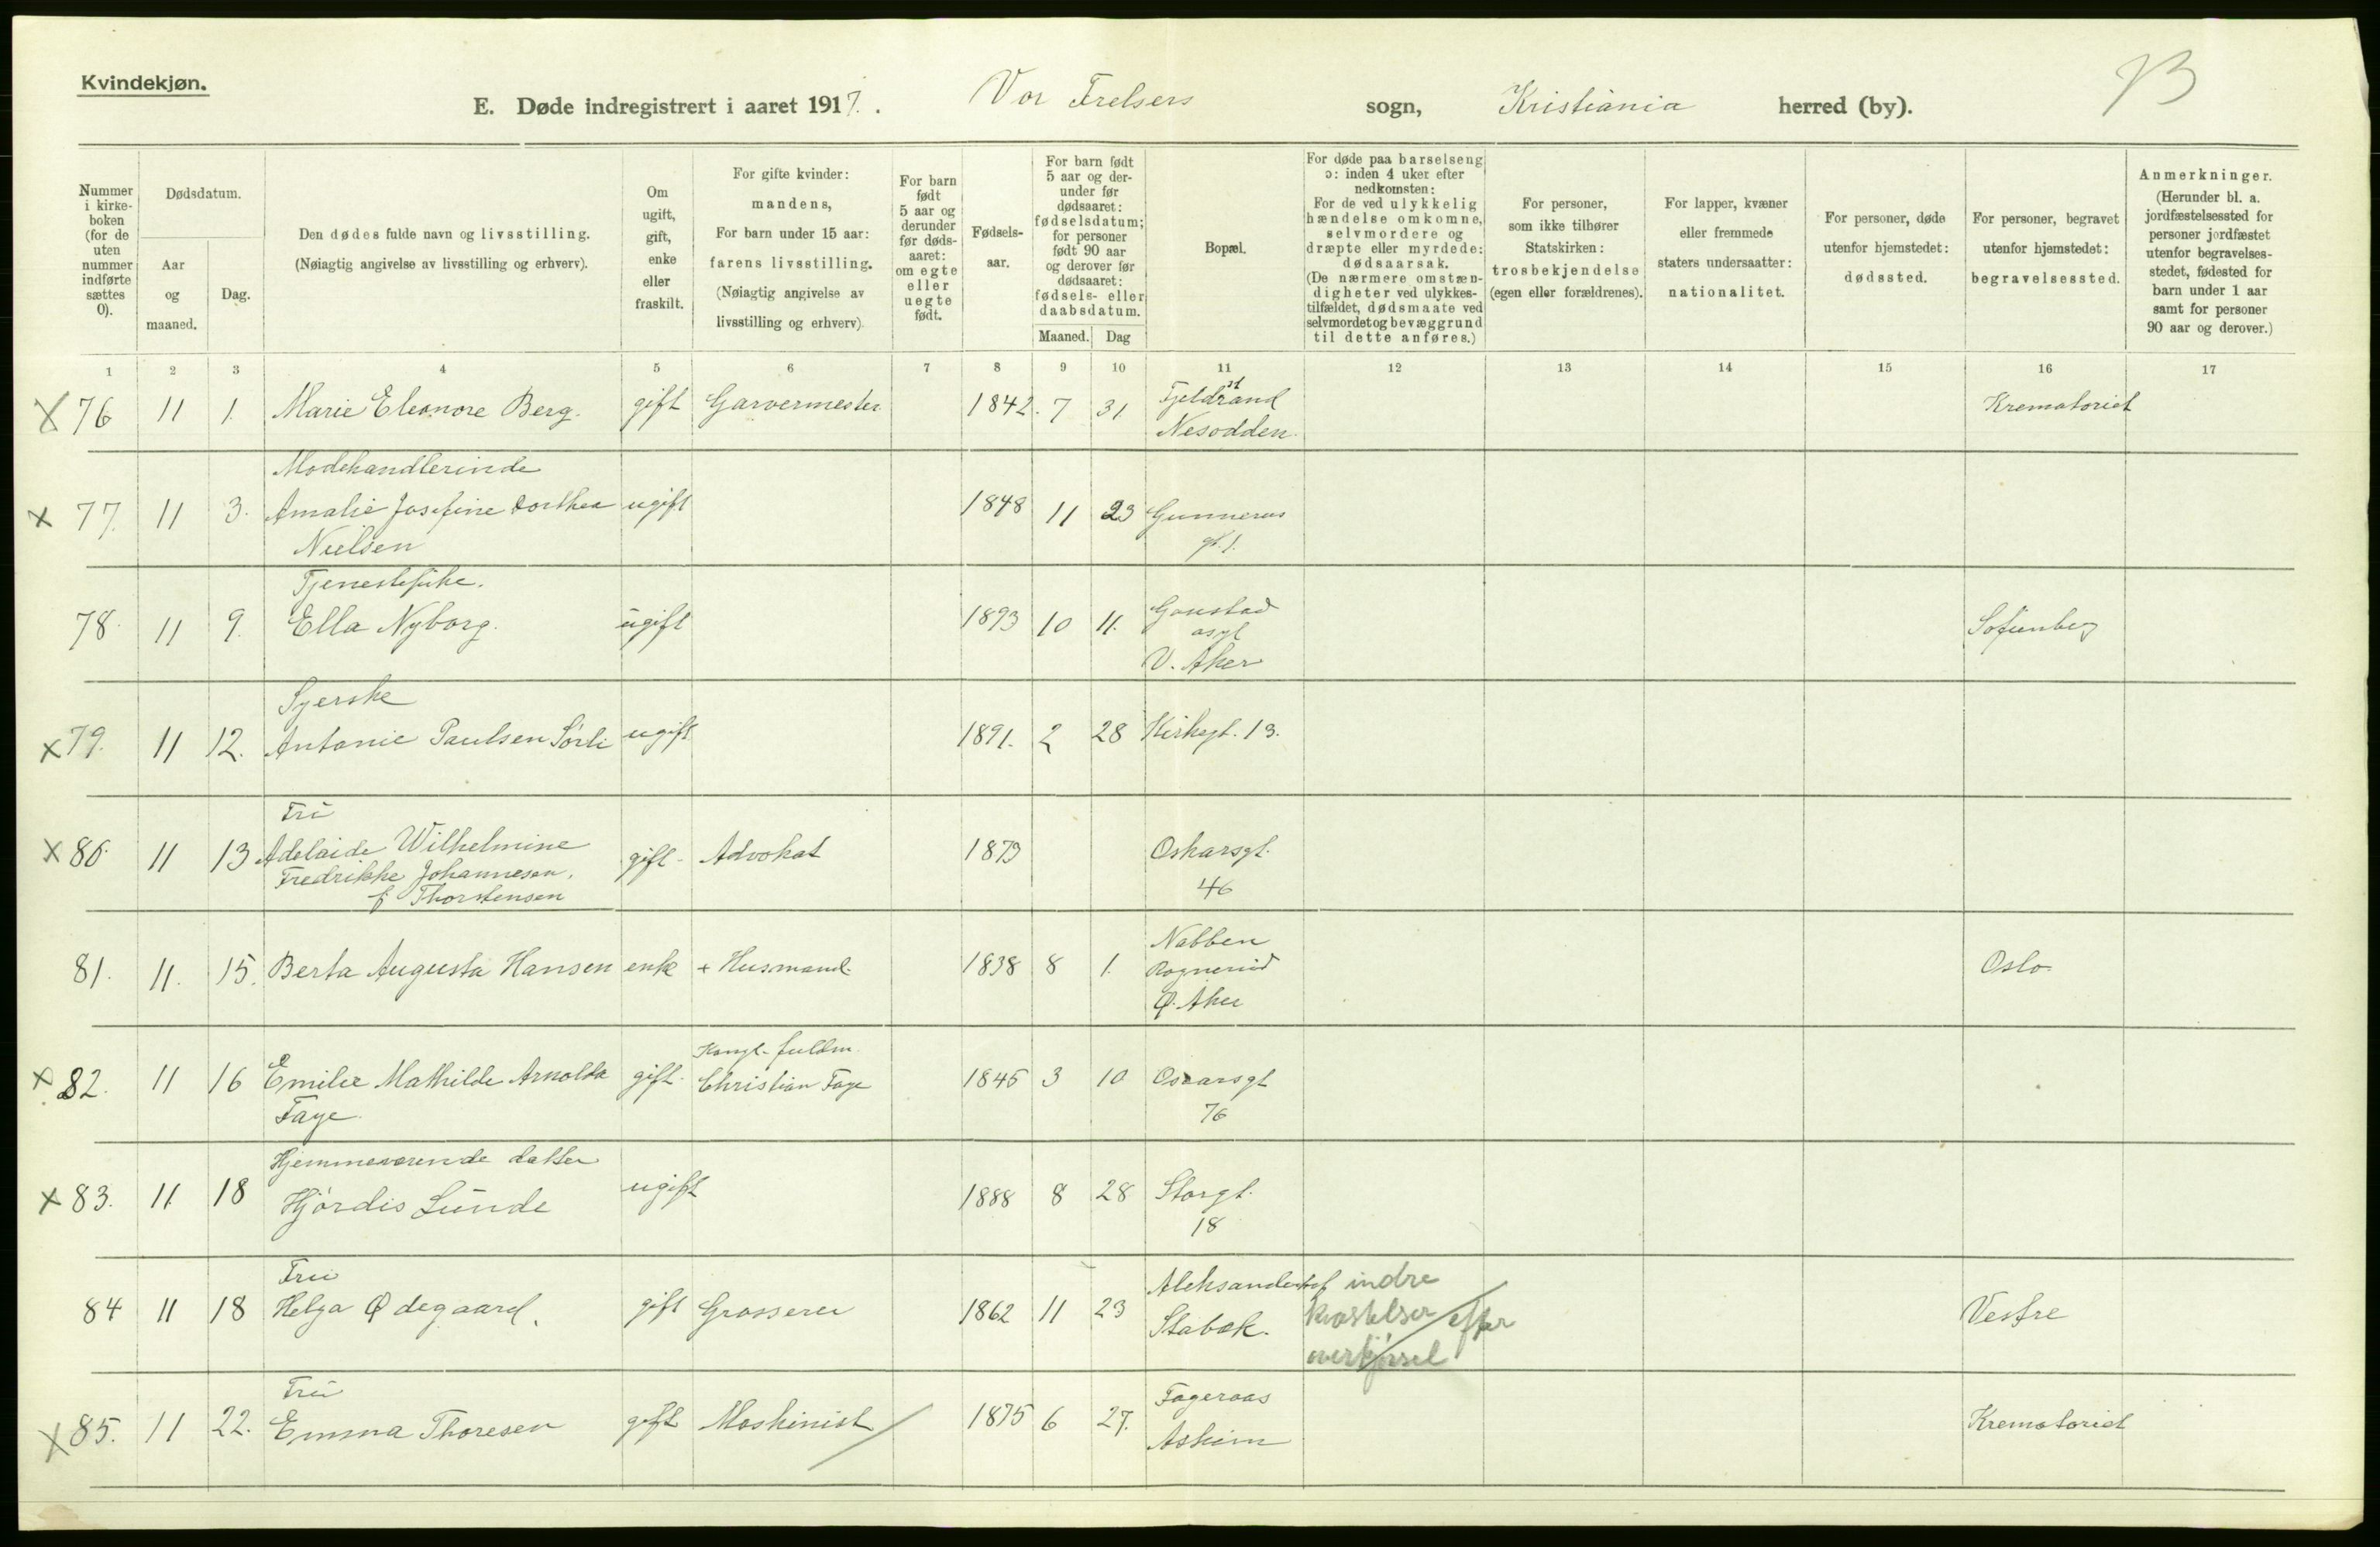 Kvindekjøn.
E. Døde indregistrert i aaret 1917. Vor Frelsers sogn, Kristiania herred (by).
Nummer i kirke-boken (for de uten nummer indførte sættes 0).
Dødsdatum.
Aar og maaned.
Dag.
Den dødes fulde navn og livsstilling.
(Nøiagtig angivelse av livsstilling og erhverv).
Om ugift, gift, enke eller fraskilt.
For gifte kvinder: mandens,
For barn under 15 aar: farens livsstilling.
(Nøiagtig angivelse av livsstilling og erhverv).
For barn født 5 aar og derunder før døds-aaret: om egte eller uegte født.
Fødsels-aar.
For barn født 5 aar og der-under før dødsaaret: fødselsdatum; for personer født 90 aar og derover før dødsaaret: fødsels- eller daabsdatum.
Maaned. Dag
Bopæl.
For døde paa barselseng ɔ: inden 4 uker efter nedkomsten:
For de ved ulykkelig hændelse omkomne, selvmordere og dræpte eller myrdede: dødsaarsak.
(De nærmere omstæn-digheter ved ulykkes-tilfældet, dødsmaate ved selvmordet og bevæggrund til dette anføres.)
For personer, som ikke tilhører Statskirken: trosbekjendelse (egen eller forældrenes).
For lapper, kvæner eller fremmede staters undersaatter: nationalitet.
For personer, døde utenfor hjemstedet: dødssted.
For personer, begravet utenfor hjemstedet: begravelsessted.
Anmerkninger.
(Herunder bl. a. jordfæstelsessted for personer jordfæstet utenfor begravelses-stedet, fødested for barn under 1 aar samt for personer 90 aar og derover.)
1 2 3 4 5 6 7 8 9 10 11 12 13 14 15 16 17
X 76 11 1. Marie Eleonore Berg. gift Garvermester 1842. 7 31. Fjeldrand Krematoriet
Nesodden.
Modehandlerinde
X 77. 11 3. Amalie Josefine Dorthea ugift 1848 11 23 Gunnerus
Nielsen gt. 1.
Tjenestepike.
78. 11 9. Ella Nyborg. ugift 1893 10 11. Gaustad Sofienberg
asyl
V. Aker
Syerske
X 79. 11 12. Antonie Paulsen Sørli ugift 1891. 2 28 Kirkegt. 13.
Fru
X 80. 11 13 Adelaide Wilhelmine gift Advokat 1873 Oskarsgt.
Fredrikke Johannesen, 46
f. Thorstensen
81. 11. 15. Berta Augusta Hansen enke + Husmand. 1838 8 1. Nabben Oslo.
Rognerud
Ø. Aker
Kongl. fuldm.
X 82. 11 16 Emilie Mathilde Arnolda gift. Christian Faye 1845 3 10 Oscarsgt
Faye. 76
Hjemmeværende datter
X 83. 11 18 Hjørdis Lunde ugift 1888 8 28 Storgt.
18
Fru
84 11 18 Helga Ødegaard. gift Grosserer 1862 11 23 Aleksanders indre Vestre
Stabæk. kvæstelser efter
overkjørsel
Fru
X 85. 11 22. Emma Thoresen gift Maskinist 1875 6 27. Fageraas Krematoriet
Askim